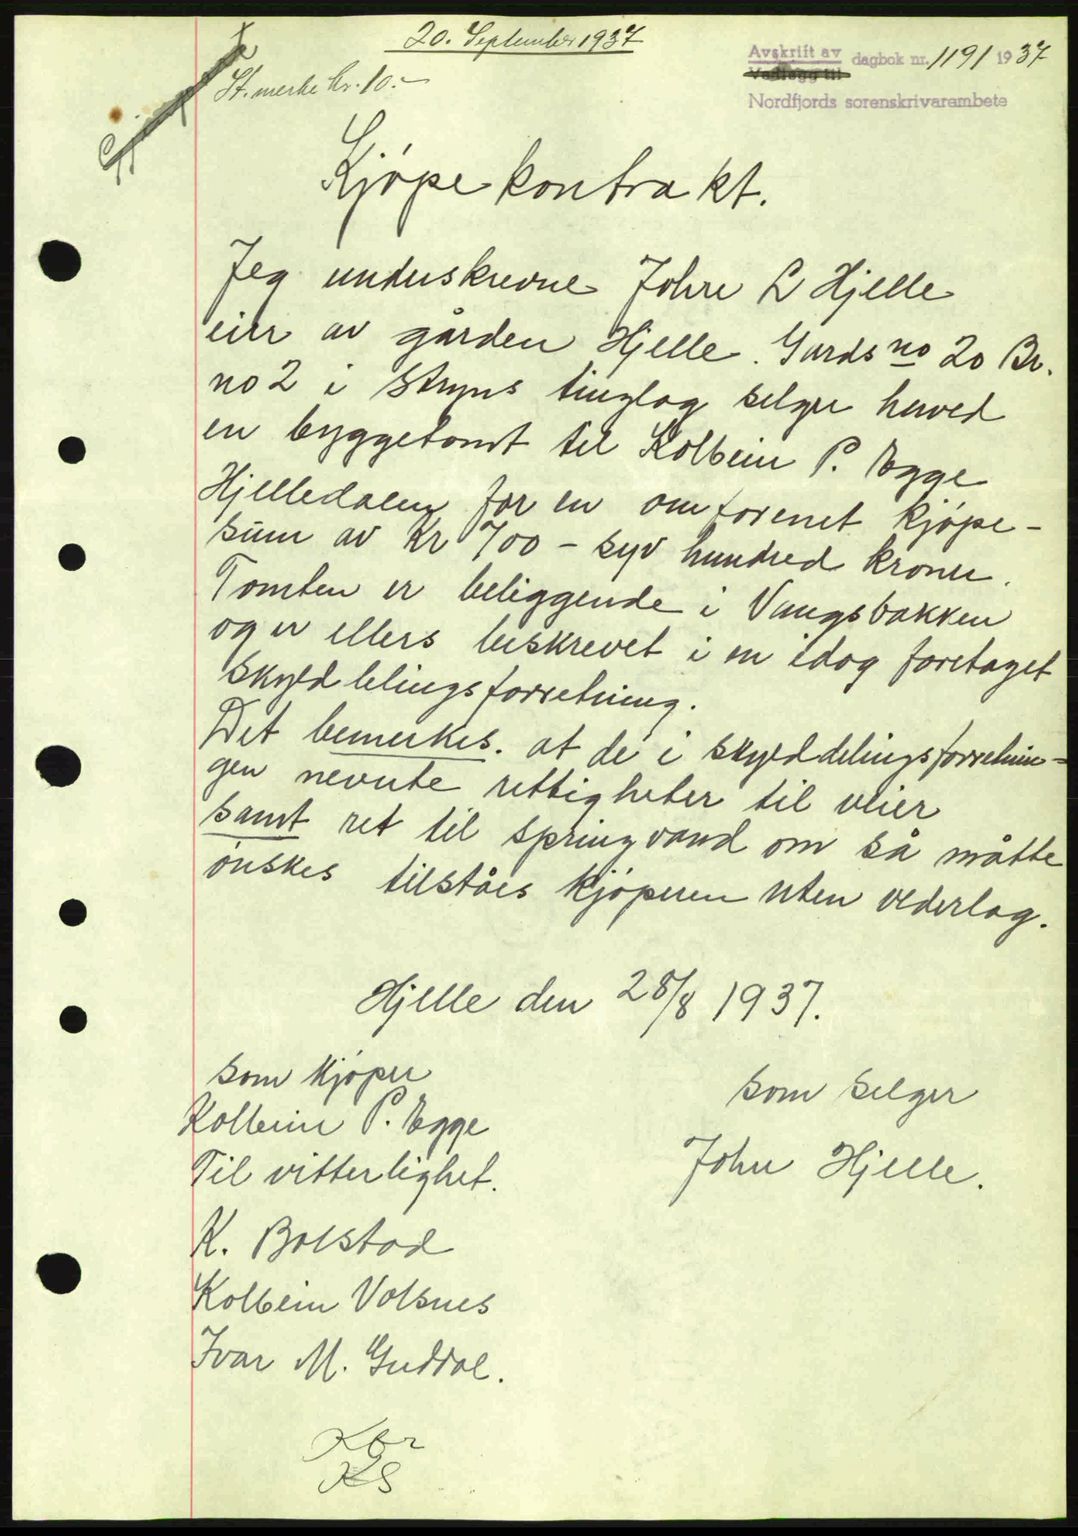 20. September 1937
Avskrift av
Vedlegg til
dagbok nr. 1191 1937
Nordfjords sorenskrivarambete
St. merke kr. 10.-
Kjøpekontrakt.
Jeg underskrevne John L Hjelle
eier av gården Hjelle. Gards no 20 Br.
no 2 i Stryns tinglag selger herved
en byggetomt til Kolbein P. Egge
Hjelledalen for en omforenet kjøpe-
sum av Kr 700 - syv hundred kroner.
Tomten er beliggende i Vangsbakken
og er ellers beskrevet i en idag foretaget
skylddelingsforretning.
Det bemerkes. at de i skylddelingsforretnin-
gen nevnte rettigheter til veier
samt ret til springvand om så måtte
ønskes tilståes kjøperen uten vederlag.
Hjelle den 28/8 1937.
som kjøper
Kolbein P. Egge
som selger
John Hjelle.
Til vitterlighet.
K. Bolstad
Kolbein Volsnes
Ivar M. Guddal.
KS